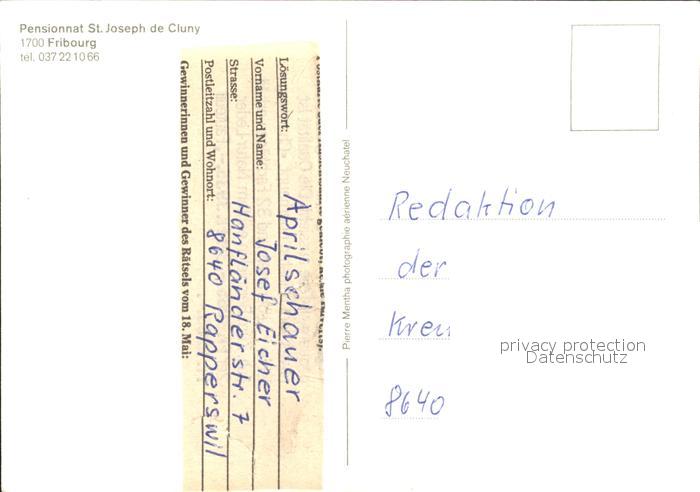 Pensionnat St. Joseph de Cluny
1700 Fribourg
tel. 037 22 10 66
Lösungswort: Aprilschauer
Vorname und Name: Josef Eicher
Strasse: Hanfländerstr. 7
Postleitzahl und Wohnort: 8640 Rapperswil
Gewinnerinnen und Gewinner des Rätsels vom 18. Mai:
Pierre Mentha photographie aérienne Neuchatel
Redaktion
der
Kreu
8640
privacy protection
Datenschutz